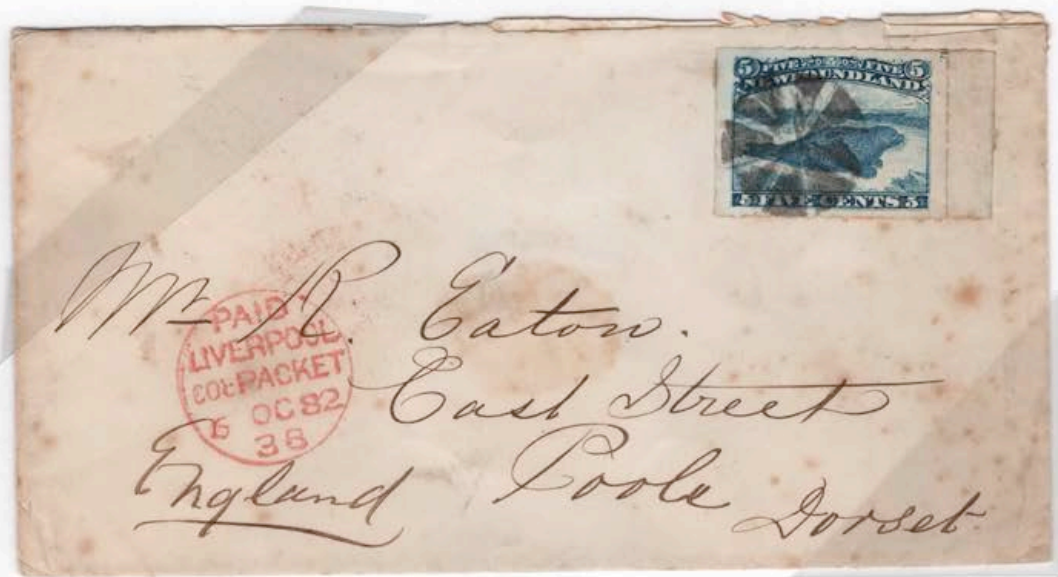 5 FIVE FIVE 5
NEWFOUNDLAND
5 FIVE CENTS 5
Mr R. Eaton.
East Street
Poole
Dorset
England
PAID
LIVERPOOL
COL PACKET
OC 82
38